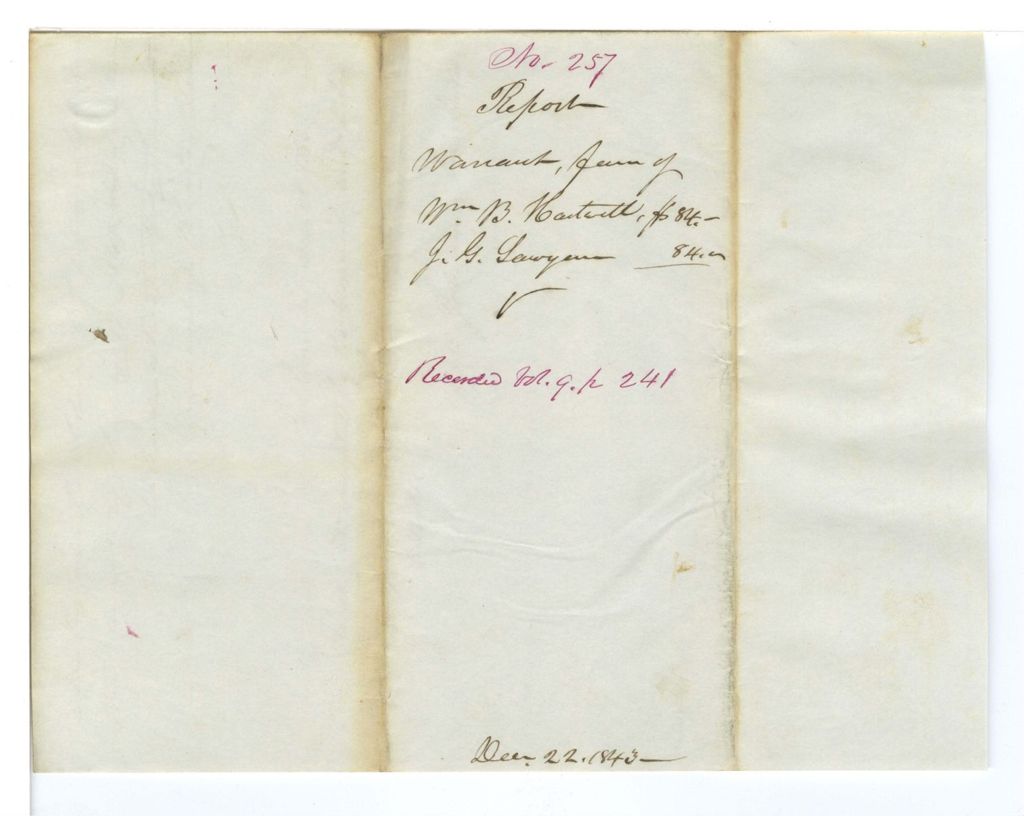 No. 257
Report
Warrant, favor of
Wm B. Hartwell, $84.–
J. G. Sawyer 84.00
Recorded Vol. 9. p 241
Decr 22. 1843